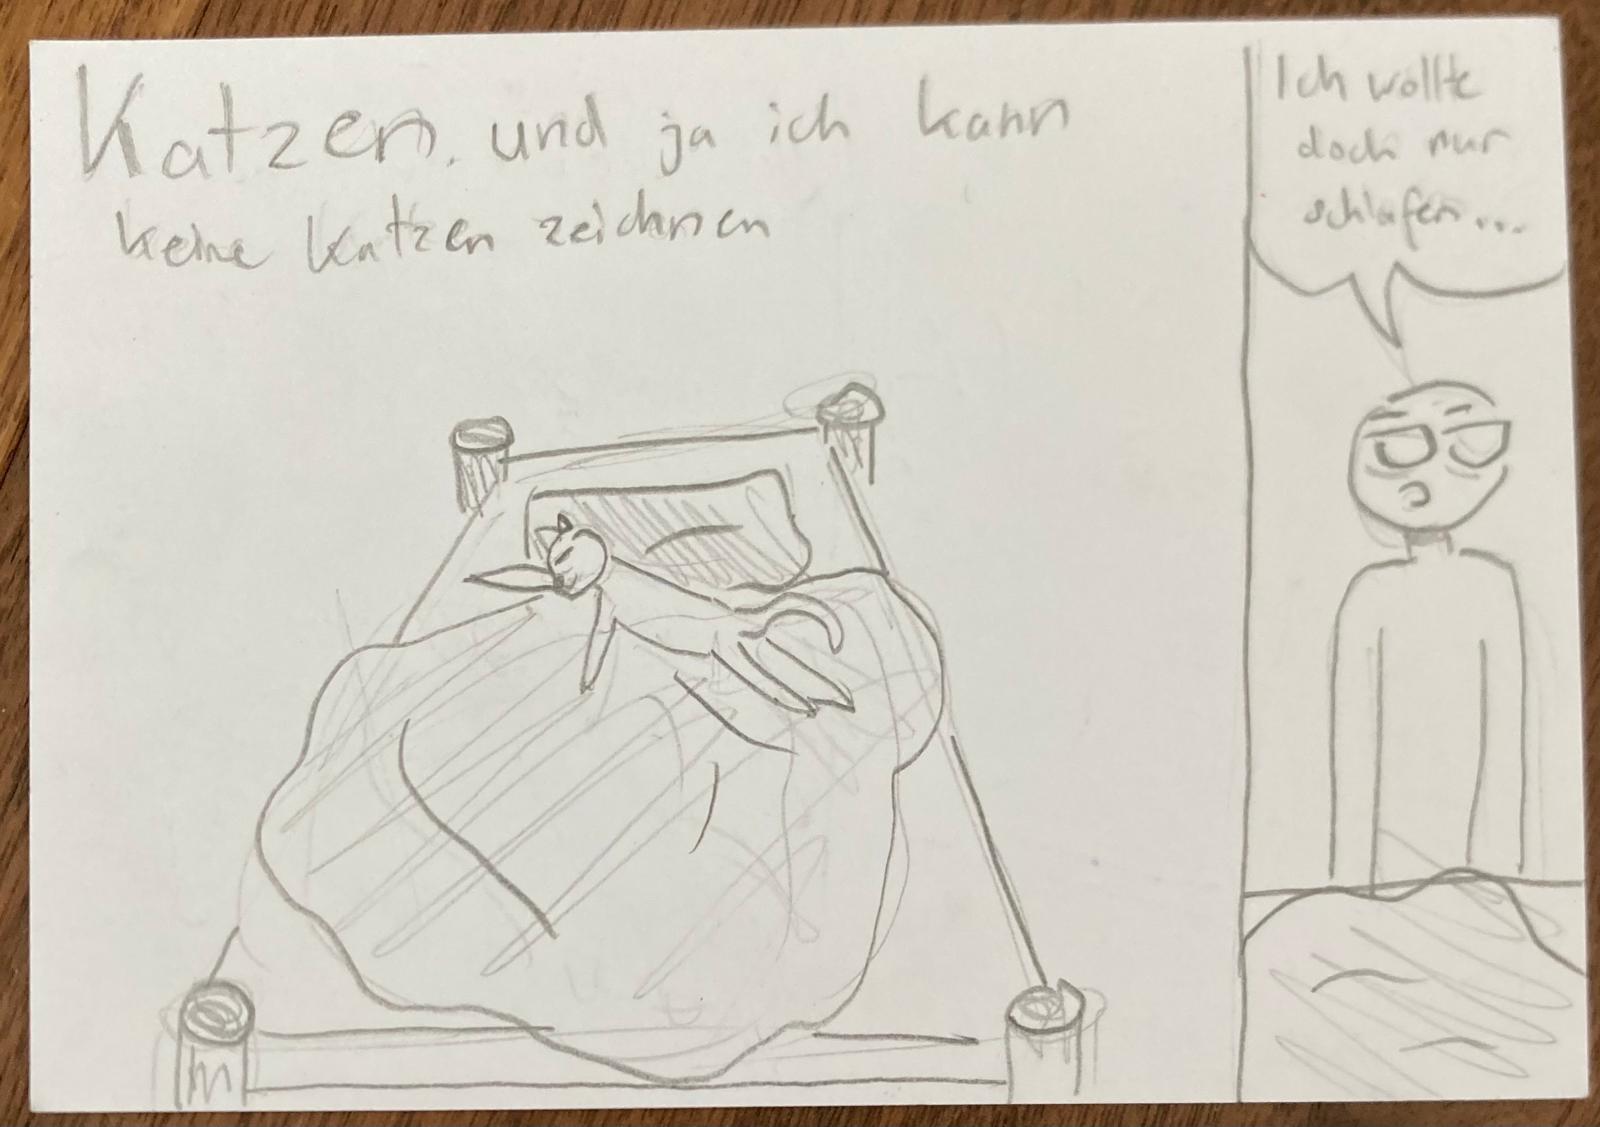 Katzen. und ja ich kann
keine Katzen zeichnen
Ich wollte
doch nur
schlafen...